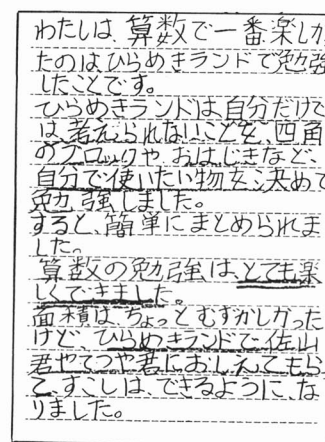 わたしは、算数で一番楽しか
たのはひらめきランドで勉強
したことです。
ひらめきランドは自分だけで
は、考えられないことを、四角
のブロックや、おはじきなど、
自分で使いたい物を決めて
勉強しました。
すると、簡単にまとめられま
した。
算数の勉強は、とても楽
しくできました。
面積は、ちょっとむずかしかった
けど、ひらめきランドで佐山
君やてつや君におしえてもら
て、すこしは、できるように、な
りました。